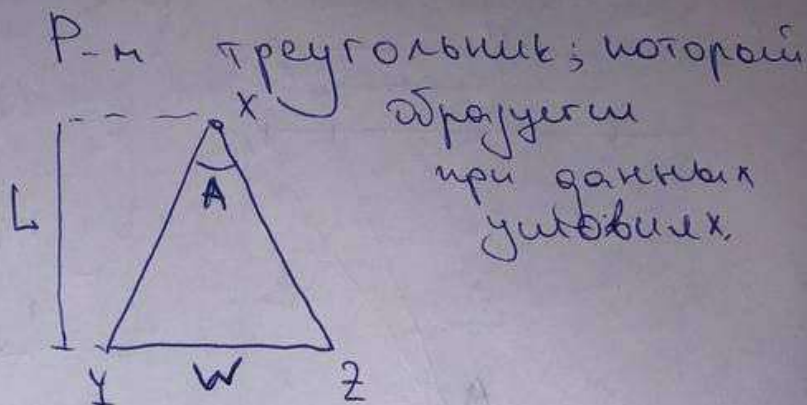 Р-м треугольник; который
X образуется
A при данных
L условиях.
Y W Z